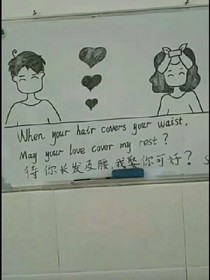 When your hair covers your waist,
May your love cover my rest?
待你长发及腰,我娶你可好?